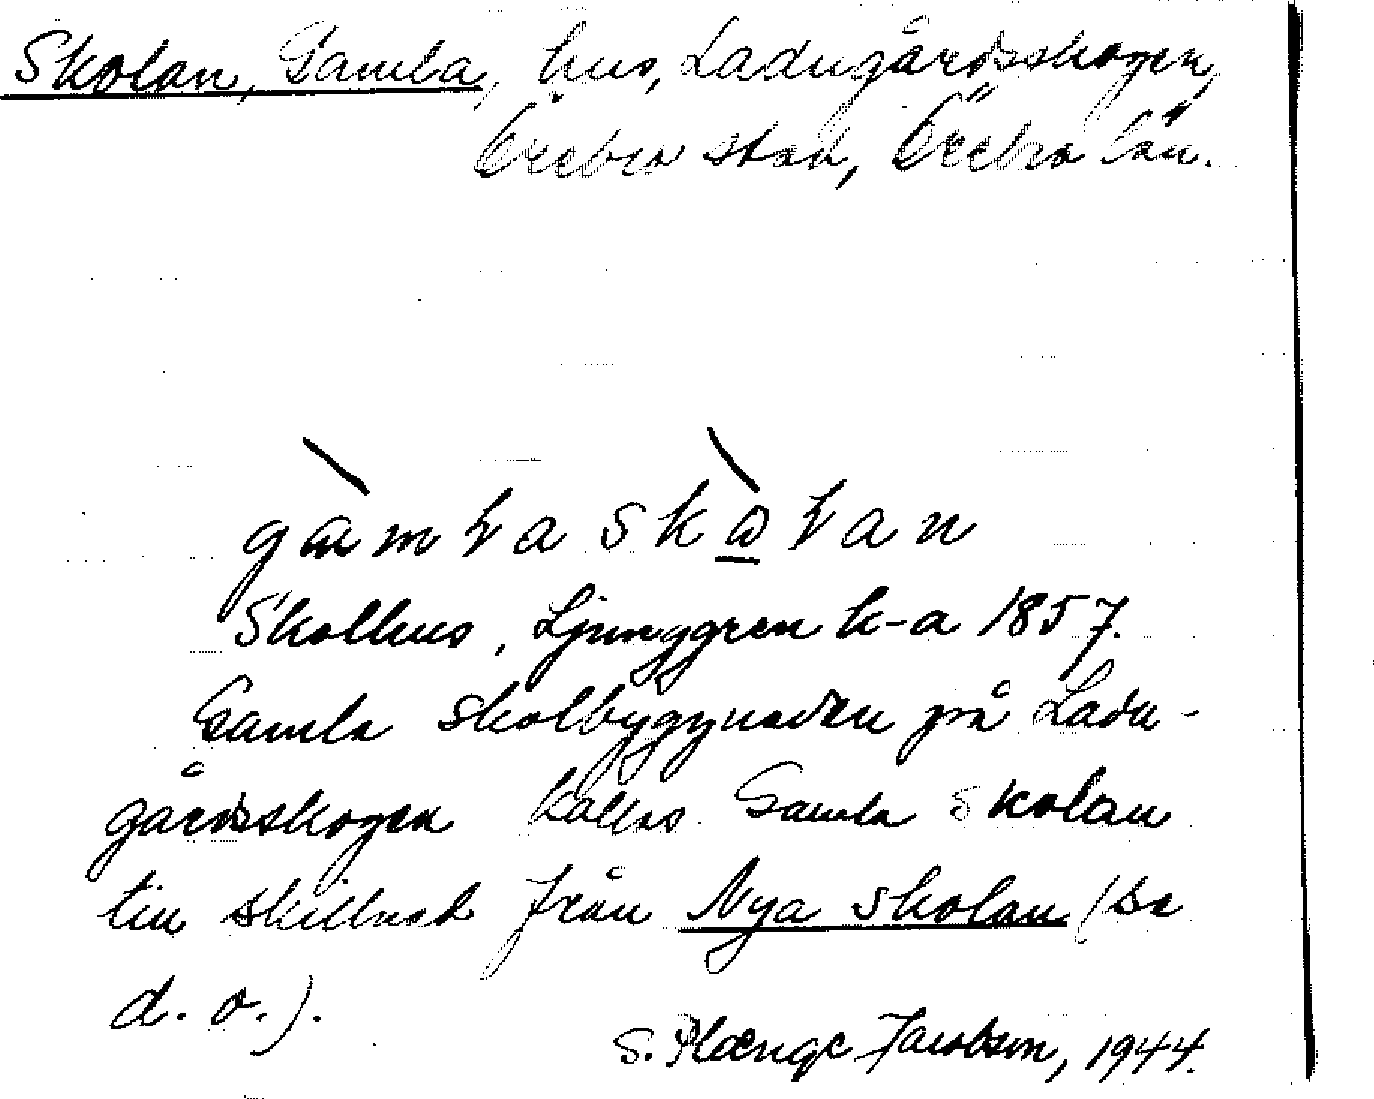 Skolan, Gamla, hus, Ladugårdsskogen,
Örebro stad, Örebro län.
gàmłaskòłan
Skolhus, Ljunggren k-a 1857.
Gamla skolbyggnaden på Ladu-
gårdsskogen kallas Gamla skolan
till skillnad från Nya skolan (se
d. o.).
S. Plænge Jacobson, 1944.